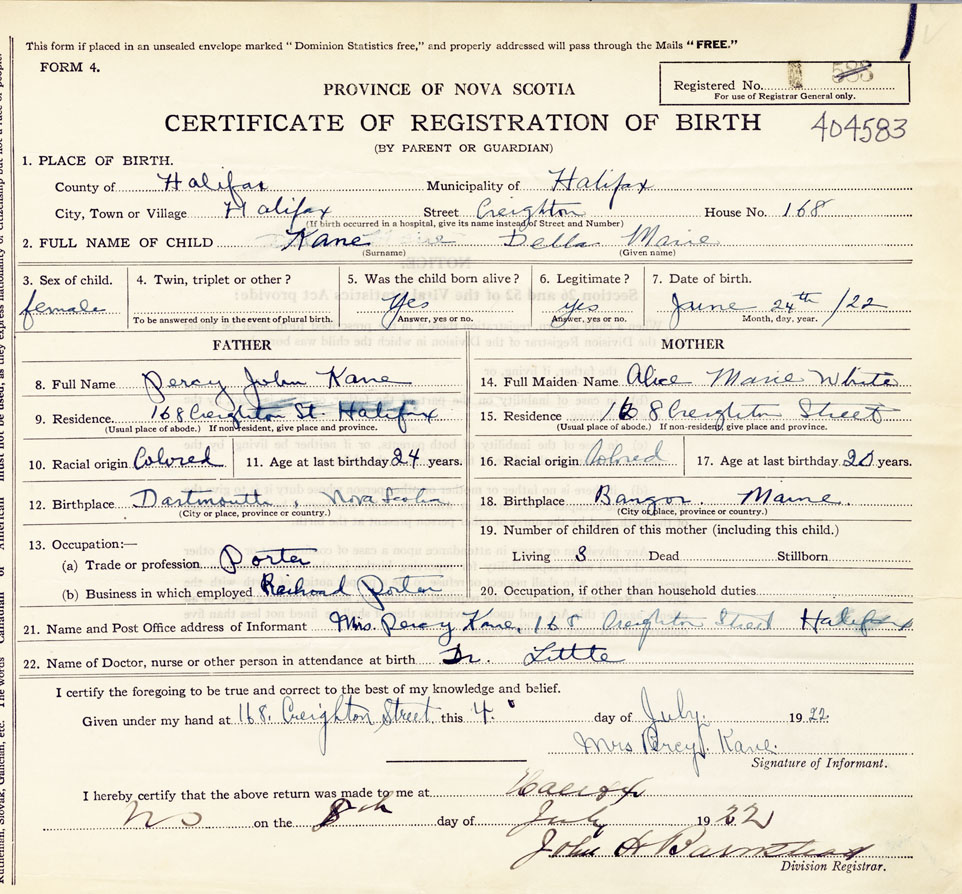 This form if placed in an unsealed envelope marked "Dominion Statistics free," and properly addressed will pass through the Mails "FREE."
FORM 4.
Registered No. 583
For use of Registrar General only.
PROVINCE OF NOVA SCOTIA
CERTIFICATE OF REGISTRATION OF BIRTH
404583
(BY PARENT OR GUARDIAN)
1. PLACE OF BIRTH.
County of Halifax Municipality of Halifax
City, Town or Village Halifax Street Creighton House No. 168
(If birth occurred in a hospital, give its name instead of Street and Number)
2. FULL NAME OF CHILD Kane Della Marie
(Surname) (Given name)
3. Sex of child. 4. Twin, triplet or other? 5. Was the child born alive? 6. Legitimate? 7. Date of birth.
female Yes yes June 24th /22
To be answered only in the event of plural birth. Answer, yes or no. Answer, yes or no. Month, day, year.
FATHER MOTHER
8. Full Name Percy John Kane
9. Residence 168 Creighton St. Halifax
(Usual place of abode.) If non-resident, give place and province.
10. Racial origin Colored 11. Age at last birthday 24 years.
12. Birthplace Dartmouth, Nova Scotia
(City or place, province or country.)
13. Occupation:—
(a) Trade or profession Porter
(b) Business in which employed Railroad Porter
14. Full Maiden Name Alice Marie White
15. Residence 168 Creighton Street
(Usual place of abode.) If non-resident, give place and province.
16. Racial origin Colored 17. Age at last birthday 20 years.
18. Birthplace Bangor. Maine.
(City or place, province or country.)
19. Number of children of this mother (including this child.)
Living 3 Dead Stillborn
20. Occupation, if other than household duties
21. Name and Post Office address of Informant Mrs. Percy Kane, 168 Creighton Street Halifax
22. Name of Doctor, nurse or other person in attendance at birth Dr. Little
I certify the foregoing to be true and correct to the best of my knowledge and belief.
Given under my hand at 168. Creighton Street this 4. day of July. 1922.
Mrs Percy J. Kane.
Signature of Informant.
I hereby certify that the above return was made to me at Halifax
NS on the 8th day of July 1922
John H Barnstead
Division Registrar.